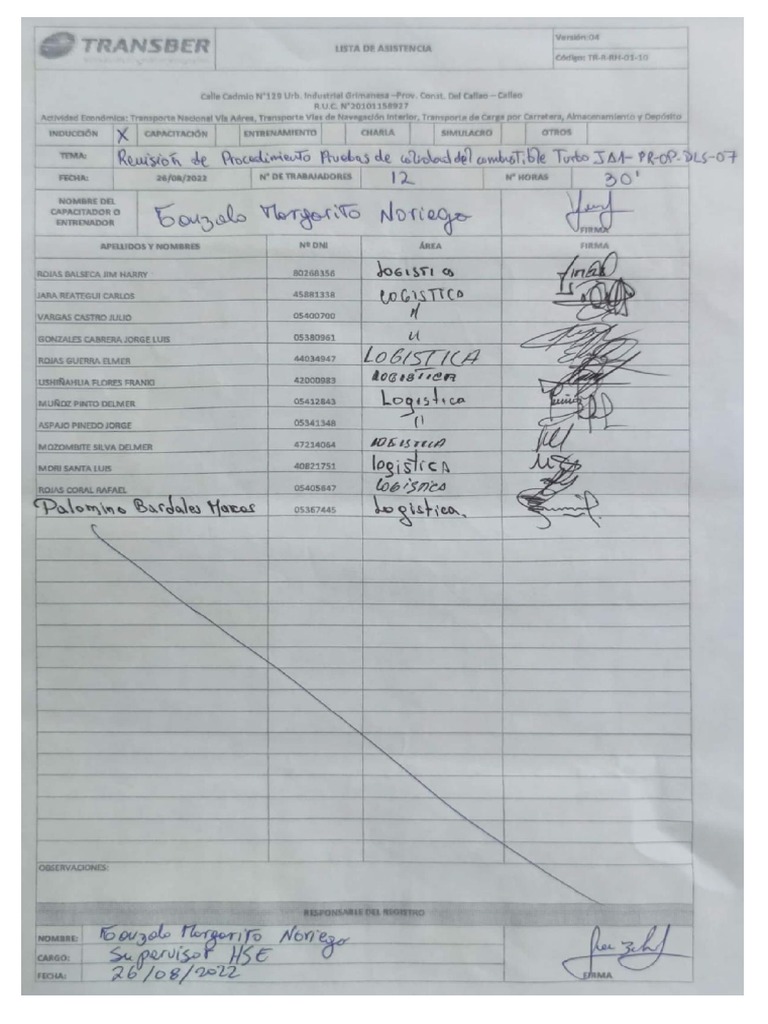 TRANSBER
LISTA DE ASISTENCIA
Versión: 04
Código: TR-R-RH-01-10
Calle Cadmio N°129 Urb. Industrial Grimanesa –Prov. Const. Del Callao – Callao
R.U.C. N°20101158927
Actividad Económica: Transporte Nacional Vía Aérea, Transporte Vías de Navegación Interior, Transporte de Carga por Carretera, Almacenamiento y Depósito
INDUCCIÓN X CAPACITACIÓN ENTRENAMIENTO CHARLA SIMULACRO OTROS
TEMA: Revisión de Procedimiento Pruebas de calidad del combustible Turbo JA1- PR-OP-DLS-07
FECHA: 26/08/2022 N° DE TRABAJADORES 12 N° HORAS 30'
NOMBRE DEL CAPACITADOR O ENTRENADOR Gonzalo Margarito Noriega FIRMA
APELLIDOS Y NOMBRES Nº DNI ÁREA FIRMA
ROJAS BALSECA JIM HARRY 80268356 LOGISTICA
JARA REATEGUI CARLOS 45881338 LOGISTICO
VARGAS CASTRO JULIO 05400700 "
GONZALES CABRERA JORGE LUIS 05380961 "
ROJAS GUERRA ELMER 44034947 LOGISTICA
USHIÑAHUA FLORES FRANKI 42000983 LOGISTICA
MUÑOZ PINTO DELMER 05412843 Logistica
ASPAJO PINEDO JORGE 05341348 "
MOZOMBITE SILVA DELMER 47214064 LOGISTICA
MORI SANTA LUIS 40821751 logistica
ROJAS CORAL RAFAEL 05405847 logistica
Palomino Bardales Marcos 05367445 Logistica.
OBSERVACIONES:
RESPONSABLE DEL REGISTRO
NOMBRE: Gonzalo Margarito Noriega
CARGO: Supervisor HSE
FECHA: 26/08/2022 FIRMA